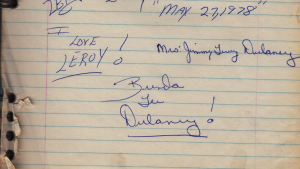 "MAY 27, 1978"
I
LOVE
LEROY!
Mrs. Jimmy Leroy Dulaney
Brenda
Lee
Dulaney!